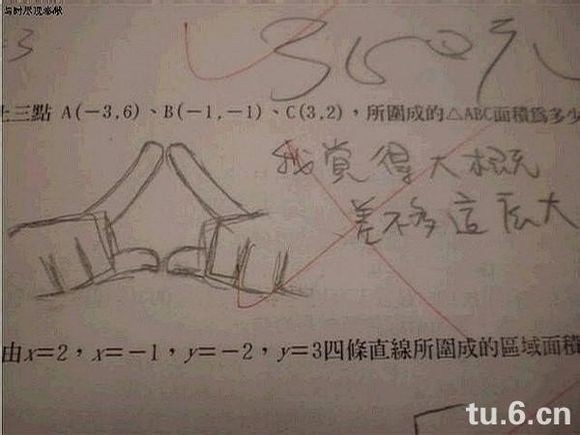 -3
350元
上三點 A(-3,6)、B(-1,-1)、C(3,2)，所圍成的△ABC面積為多少
我覺得大概
差不多這麼大
由x=2，x=-1，y=-2，y=3四條直線所圍成的區域面積
tu.6.cn